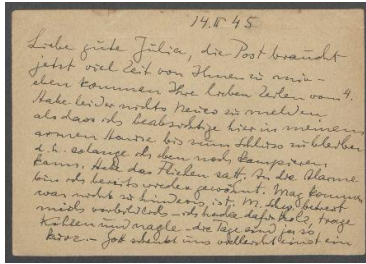 14.II 45
Liebe gute Julia, die Post braucht
jetzt viel Zeit von Ihnen zu mir –
eben kommen Ihre lieben Zeilen vom 4.
Habe leider nichts Neues zu melden,
als dass ich beabsichtige hier in meinem
armen Hause bis zum Schluss zu bleiben
d. h. solange ich eben noch kampieren
kann. Habe das Fliehen satt. In die Alarme
bin ich bereits wieder gewöhnt. Mag kommen
was nicht zu hindern ist. M. betreut
mich vorbildlich – ich hacke dafür Holz, trage
Kohlen und nagle – die Tage sind ja so
kurz – Gott schenkt uns vielleicht einst ein